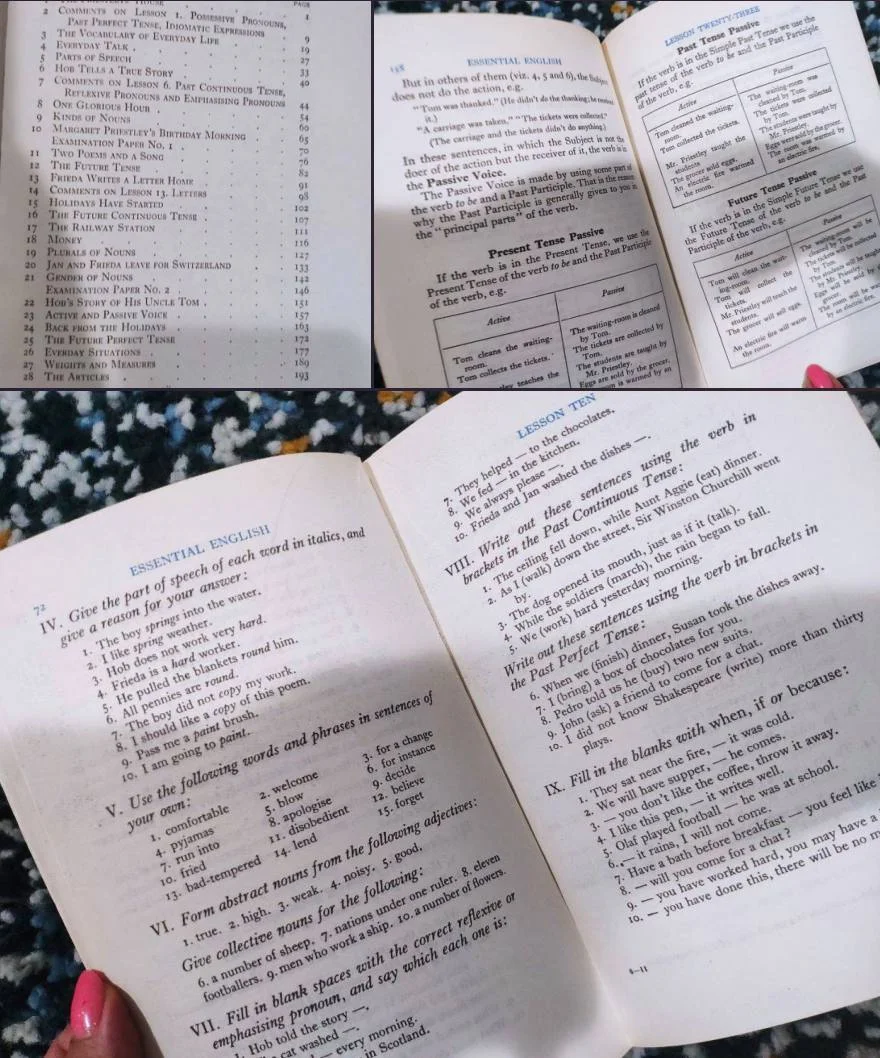 PAGE
2 COMMENTS ON LESSON 1. POSSESSIVE PRONOUNS, 1
PAST PERFECT TENSE, IDIOMATIC EXPRESSIONS 9
3 THE VOCABULARY OF EVERYDAY LIFE 19
4 EVERYDAY TALK 27
5 PARTS OF SPEECH 33
6 HOB TELLS A TRUE STORY 40
7 COMMENTS ON LESSON 6. PAST CONTINUOUS TENSE,
REFLEXIVE PRONOUNS AND EMPHASISING PRONOUNS 44
8 ONE GLORIOUS HOUR 54
9 KINDS OF NOUNS 60
10 MARGARET PRIESTLEY'S BIRTHDAY MORNING 65
EXAMINATION PAPER No. 1 70
11 TWO POEMS AND A SONG 76
12 THE FUTURE TENSE 82
13 FRIEDA WRITES A LETTER HOME 91
14 COMMENTS ON LESSON 13. LETTERS 98
15 HOLIDAYS HAVE STARTED 102
16 THE FUTURE CONTINUOUS TENSE 107
17 THE RAILWAY STATION 111
18 MONEY 116
19 PLURALS OF NOUNS 127
20 JAN AND FRIEDA LEAVE FOR SWITZERLAND 133
21 GENDER OF NOUNS 142
EXAMINATION PAPER No. 2 146
22 HOB'S STORY OF HIS UNCLE TOM 151
23 ACTIVE AND PASSIVE VOICE 157
24 BACK FROM THE HOLIDAYS 163
25 THE FUTURE PERFECT TENSE 172
26 EVERDAY SITUATIONS 177
27 WEIGHTS AND MEASURES 189
28 THE ARTICLES 193
158 ESSENTIAL ENGLISH
But in others of them (viz. 4, 5 and 6), the Subject
does not do the action, e.g.
"Tom was thanked." (He didn't do the thanking; he received
it.)
"A carriage was taken," "The tickets were collected."
(The carriage and the tickets didn't do anything.)
In these sentences, in which the Subject is not the
doer of the action but the receiver of it, the verb is in
the Passive Voice.
The Passive Voice is made by using some part of
the verb to be and a Past Participle. That is the reason
why the Past Participle is generally given to you in
the "principal parts" of the verb.
Present Tense Passive
If the verb is in the Present Tense, we use the
Present Tense of the verb to be and the Past Participle
of the verb, e.g.
Active Passive
Tom cleans the waiting-room. The waiting-room is cleaned by Tom.
Tom collects the tickets. The tickets are collected by Tom.
teaches the The students are taught by Mr. Priestley.
Eggs are sold by the grocer.
room is warmed by an
LESSON TWENTY-THREE
Past Tense Passive
If the verb is in the Simple Past Tense we use the
past tense of the verb to be and the Past Participle
of the verb, e.g.
Active Passive
Tom cleaned the waiting-room. The waiting-room was cleaned by Tom.
Tom collected the tickets. The tickets were collected by Tom.
Mr. Priestley taught the students. The students were taught by Mr. Priestley.
The grocer sold eggs. Eggs were sold by the grocer.
An electric fire warmed the room. The room was warmed by an electric fire.
Future Tense Passive
If the verb is in the Simple Future Tense we use
the Future Tense of the verb to be and the Past
Participle of the verb, e.g.
Active Passive
Tom will clean the waiting-room. The waiting-room will be cleaned by Tom.
Tom will collect the tickets. The tickets will be collected by Tom.
Mr. Priestley will teach the students. The students will be taught by Mr. Priestley.
The grocer will sell eggs. Eggs will be sold by the grocer.
An electric fire will warm the room. The room will be warmed by an electric fire.
72 ESSENTIAL ENGLISH
IV. Give the part of speech of each word in italics, and
give a reason for your answer:
1. The boy springs into the water.
2. I like spring weather.
3. Hob does not work very hard.
4. Frieda is a hard worker.
5. He pulled the blankets round him.
6. All pennies are round.
7. The boy did not copy my work.
8. I should like a copy of this poem.
9. Pass me a paint brush.
10. I am going to paint.
V. Use the following words and phrases in sentences of
your own:
1. comfortable 2. welcome 3. for a change
4. pyjamas 5. blow 6. for instance
7. run into 8. apologise 9. decide
10. fried 11. disobedient 12. believe
13. bad-tempered 14. lend 15. forget
VI. Form abstract nouns from the following adjectives:
1. true. 2. high. 3. weak. 4. noisy. 5. good.
Give collective nouns for the following:
6. a number of sheep. 7. nations under one ruler. 8. eleven
footballers. 9. men who work a ship. 10. a number of flowers.
VII. Fill in blank spaces with the correct reflexive or
emphasising pronoun, and say which each one is:
Hob told the story —.
cat washed —.
— every morning.
in Scotland.
LESSON TEN
7. They helped — to the chocolates.
8. We fed — in the kitchen.
9. We always please —.
10. Frieda and Jan washed the dishes —.
VIII. Write out these sentences using the verb in
brackets in the Past Continuous Tense:
1. The ceiling fell down, while Aunt Aggie (eat) dinner.
2. As I (walk) down the street, Sir Winston Churchill went
by.
3. The dog opened its mouth, just as if it (talk).
4. While the soldiers (march), the rain began to fall.
5. We (work) hard yesterday morning.
Write out these sentences using the verb in brackets in
the Past Perfect Tense:
6. When we (finish) dinner, Susan took the dishes away.
7. I (bring) a box of chocolates for you.
8. Pedro told us he (buy) two new suits.
9. John (ask) a friend to come for a chat.
10. I did not know Shakespeare (write) more than thirty
plays.
IX. Fill in the blanks with when, if or because:
1. They sat near the fire, — it was cold.
2. We will have supper, — he comes.
3. — you don't like the coffee, throw it away.
4. I like this pen, — it writes well.
5. Olaf played football — he was at school.
6. — it rains, I will not come.
7. Have a bath before breakfast — you feel like
8. — will you come for a chat?
9. — you have worked hard, you may have a
10. — you have done this, there will be no